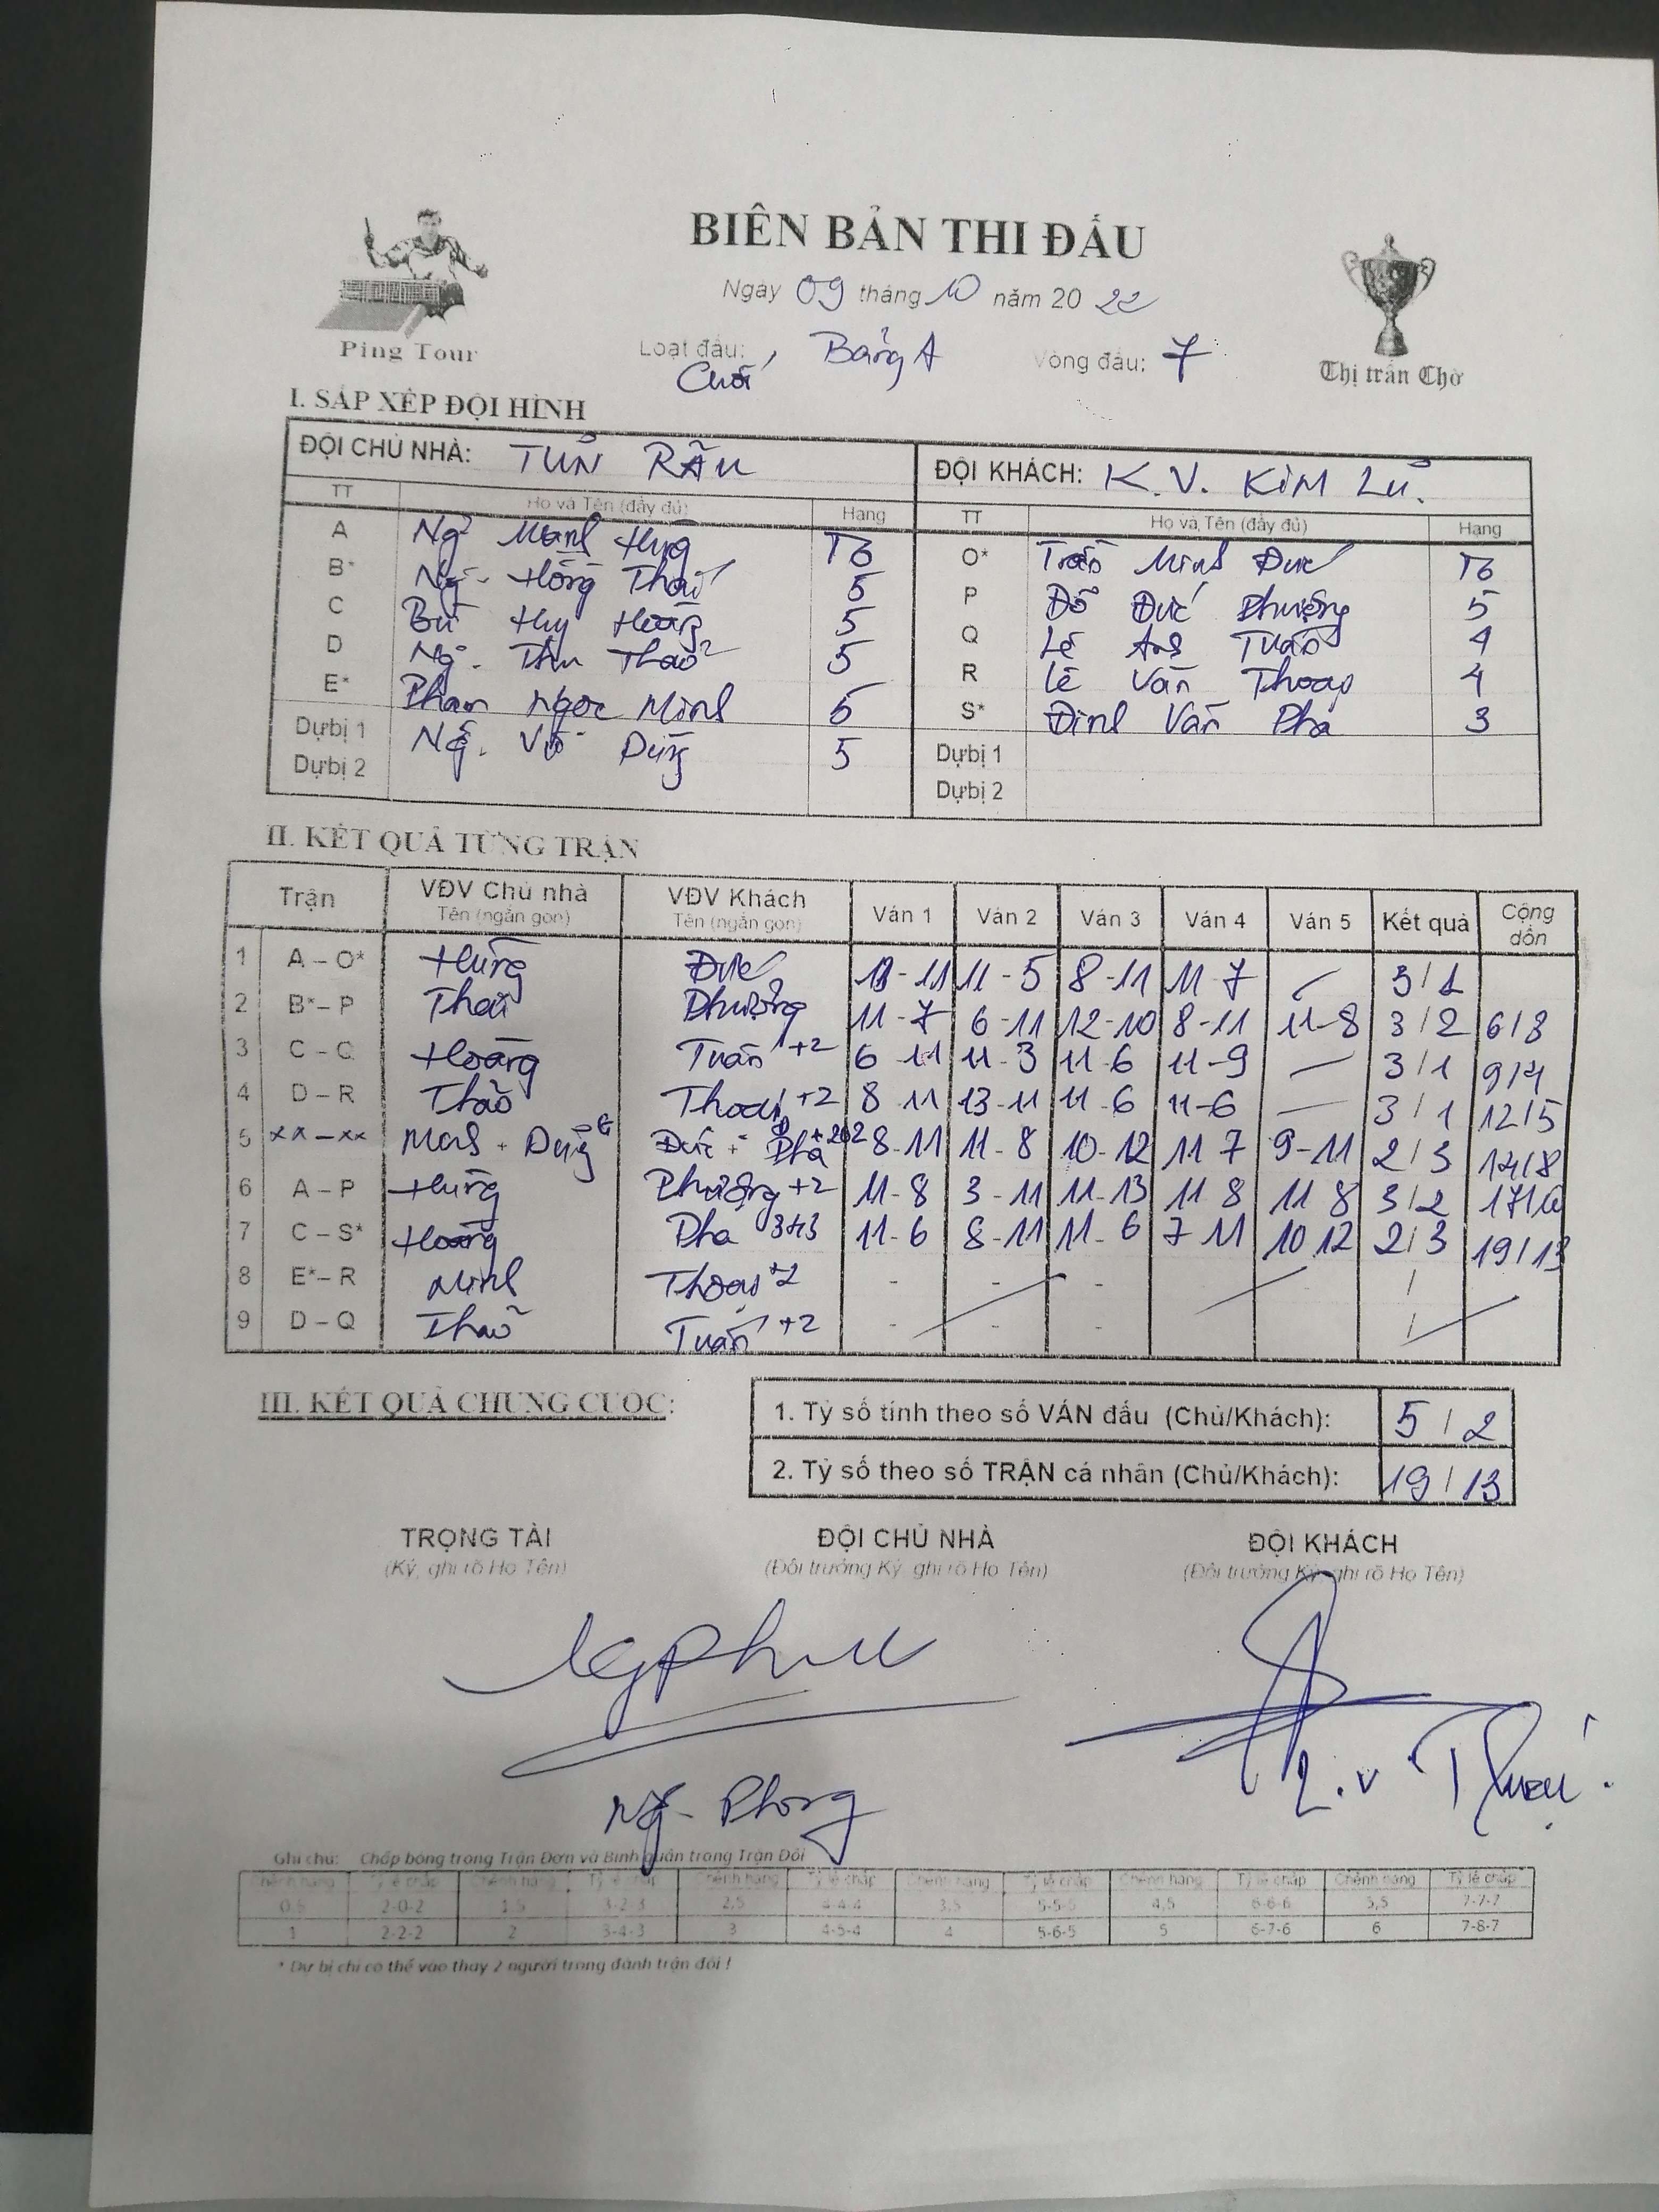 BIÊN BẢN THI ĐẤU
Ngày 09 tháng 10 năm 20 22
Ping Tour
Loạt đấu: Bảng A Vòng đấu: 7
Thị trấn Chờ
I. SẮP XẾP ĐỘI HÌNH
ĐỘI CHỦ NHÀ: TUẤN RÂU ĐỘI KHÁCH: K.V. KIM LŨ.
TT Họ và Tên (đầy đủ) Hạng TT Họ và Tên (đầy đủ) Hạng
A Ng Manh Hùng O* Trần Minh Đức
B* Ng. Hồng Thái 5 P Đỗ Đức Phượng 5
C Bùi Huy Hoàng 5 Q Lê Anh Tuấn 4
D Ng. Thảo 5 R Lê Văn Thoại 4
E* Phan Ngọc Minh S* Đinh Văn Pha 3
Dự bị 1 Ng. Dũng 5 Dự bị 1
Dự bị 2 Dự bị 2
II. KẾT QUẢ TỪNG TRẬN
Trận VĐV Chủ nhà VĐV Khách Ván 1 Ván 2 Ván 3 Ván 4 Ván 5 Kết quả Cộng dồn
Tên (ngắn gọn) Tên (ngắn gọn)
1 A – O* Hùng Đức 13-11 11-5 8-11 11-7 3/1
2 B* – P Thái Phượng 11-7 6-11 12-10 8-11 11-8 3/2 6/3
3 C – Q Hoàng Tuấn +2 6-11 11-3 11-6 11-9 — 3/1 9/4
4 D – R Thảo Thoại +2 8-11 13-11 11-6 11-6 — 3/1 12/5
5 xx – xx Minh + Dũng Đức + Pha 8-11 11-8 10-12 11-7 9-11 2/3 14/8
6 A – P Hùng Phượng +2 11-8 3-11 11-13 11-8 11-8 3/2 17/10
7 C – S* Hoàng Pha 343 11-6 8-11 11-6 7-11 10-12 2/3 19/13
8 E* – R Minh Thoại +2 - - - /
9 D – Q Thảo Tuấn +2 - - - /
III. KẾT QUẢ CHUNG CUỘC:
1. Tỷ số tính theo số VÁN đấu (Chủ/Khách): 5 / 2
2. Tỷ số theo số TRẬN cá nhân (Chủ/Khách): 19 / 13
TRỌNG TÀI ĐỘI CHỦ NHÀ ĐỘI KHÁCH
(Ký, ghi rõ Họ Tên) (Đội trưởng Ký, ghi rõ Họ Tên) (Đội trưởng Ký, ghi rõ Họ Tên)
Ng. Phong
L.V Thoại
Ghi chú: Chấp bóng trong Trận Đơn và Bình quân trong Trận Đôi
Chênh hạng Tỷ lệ chấp Chênh hạng Tỷ lệ chấp Chênh hạng Tỷ lệ chấp Chênh hạng Tỷ lệ chấp Chênh hạng Tỷ lệ chấp Chênh hạng Tỷ lệ chấp
0,5 2-0-2 1,5 3-2-3 2,5 4-4-4 3,5 5-5-5 4,5 6-6-6 5,5 7-7-7
1 2-2-2 2 3-4-3 3 4-5-4 4 5-6-5 5 6-7-6 6 7-8-7
* Dự bị chỉ có thể vào thay 2 người trong đánh trận đôi !